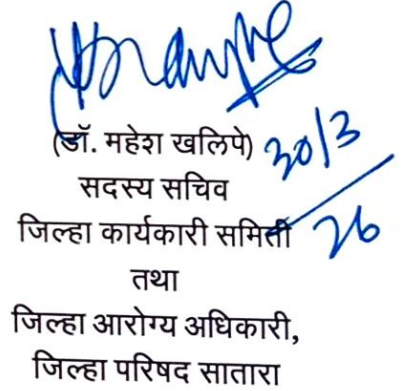 (डॉ. महेश खलिपे) 30/3/26
सदस्य सचिव
जिल्हा कार्यकारी समिती
तथा
जिल्हा आरोग्य अधिकारी,
जिल्हा परिषद सातारा